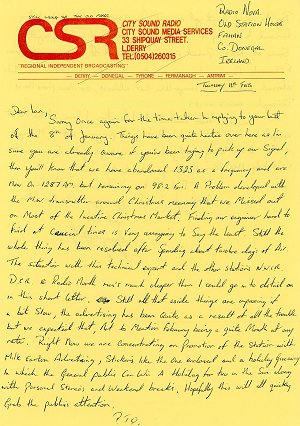 STILL USING UP THE OLD PAPER
CSR
CITY SOUND RADIO
CITY SOUND MEDIA SERVICES
33 SHIPQUAY STREET,
L.DERRY
TEL.(0504)260315
"REGIONAL INDEPENDENT BROADCASTING"
DERRY — DONEGAL — TYRONE — FERMANAGH — ANTRIM
Radio Nova
Old Station House
Fahan
Co. Donegal
Ireland
Tuesday 11th Feb.
Dear Ian,
Sorry once again for the time taken in replying to your letter
of the 8th of January. Things have been quite hectic over here as I'm
sure you are already aware if you've been trying to pick up our Signal,
then you'll know that we have abandoned 1323 as a frequency and are
Now on 1287 AM but remaining on 98.2 FM. A Problem developed with
the M.W. transmitter around Christmas meaning that we Missed out
on Most of the lucrative Christmas Market. Finding our engineer hard to
find at crucial times is Very annoying to Say the least. Still the
whole thing has been resolved after Spending about twelve days off Air.
The situation with this technical expert and the other stations N.W.C.R.
D.C.R. & Radio North run's much deeper than I could go into detail on
in this short letter. Still all that aside things are improving if
a bit Slow, the advertising has been Quite as a result of all the trouble
but we expected that, Not to Mention February being a quite Month at any
rate. Right Now we are Concentrating on Promotion of the Station with
Milk Carton Advertising, Stickers like the one enclosed and a holiday Giveaway
In which the General public Can Win A Holiday for two in the Sun along
with Personal Stereos and Weekend breaks. Hopefully this will all quickly
Grab the publics attention.
P.T.O.